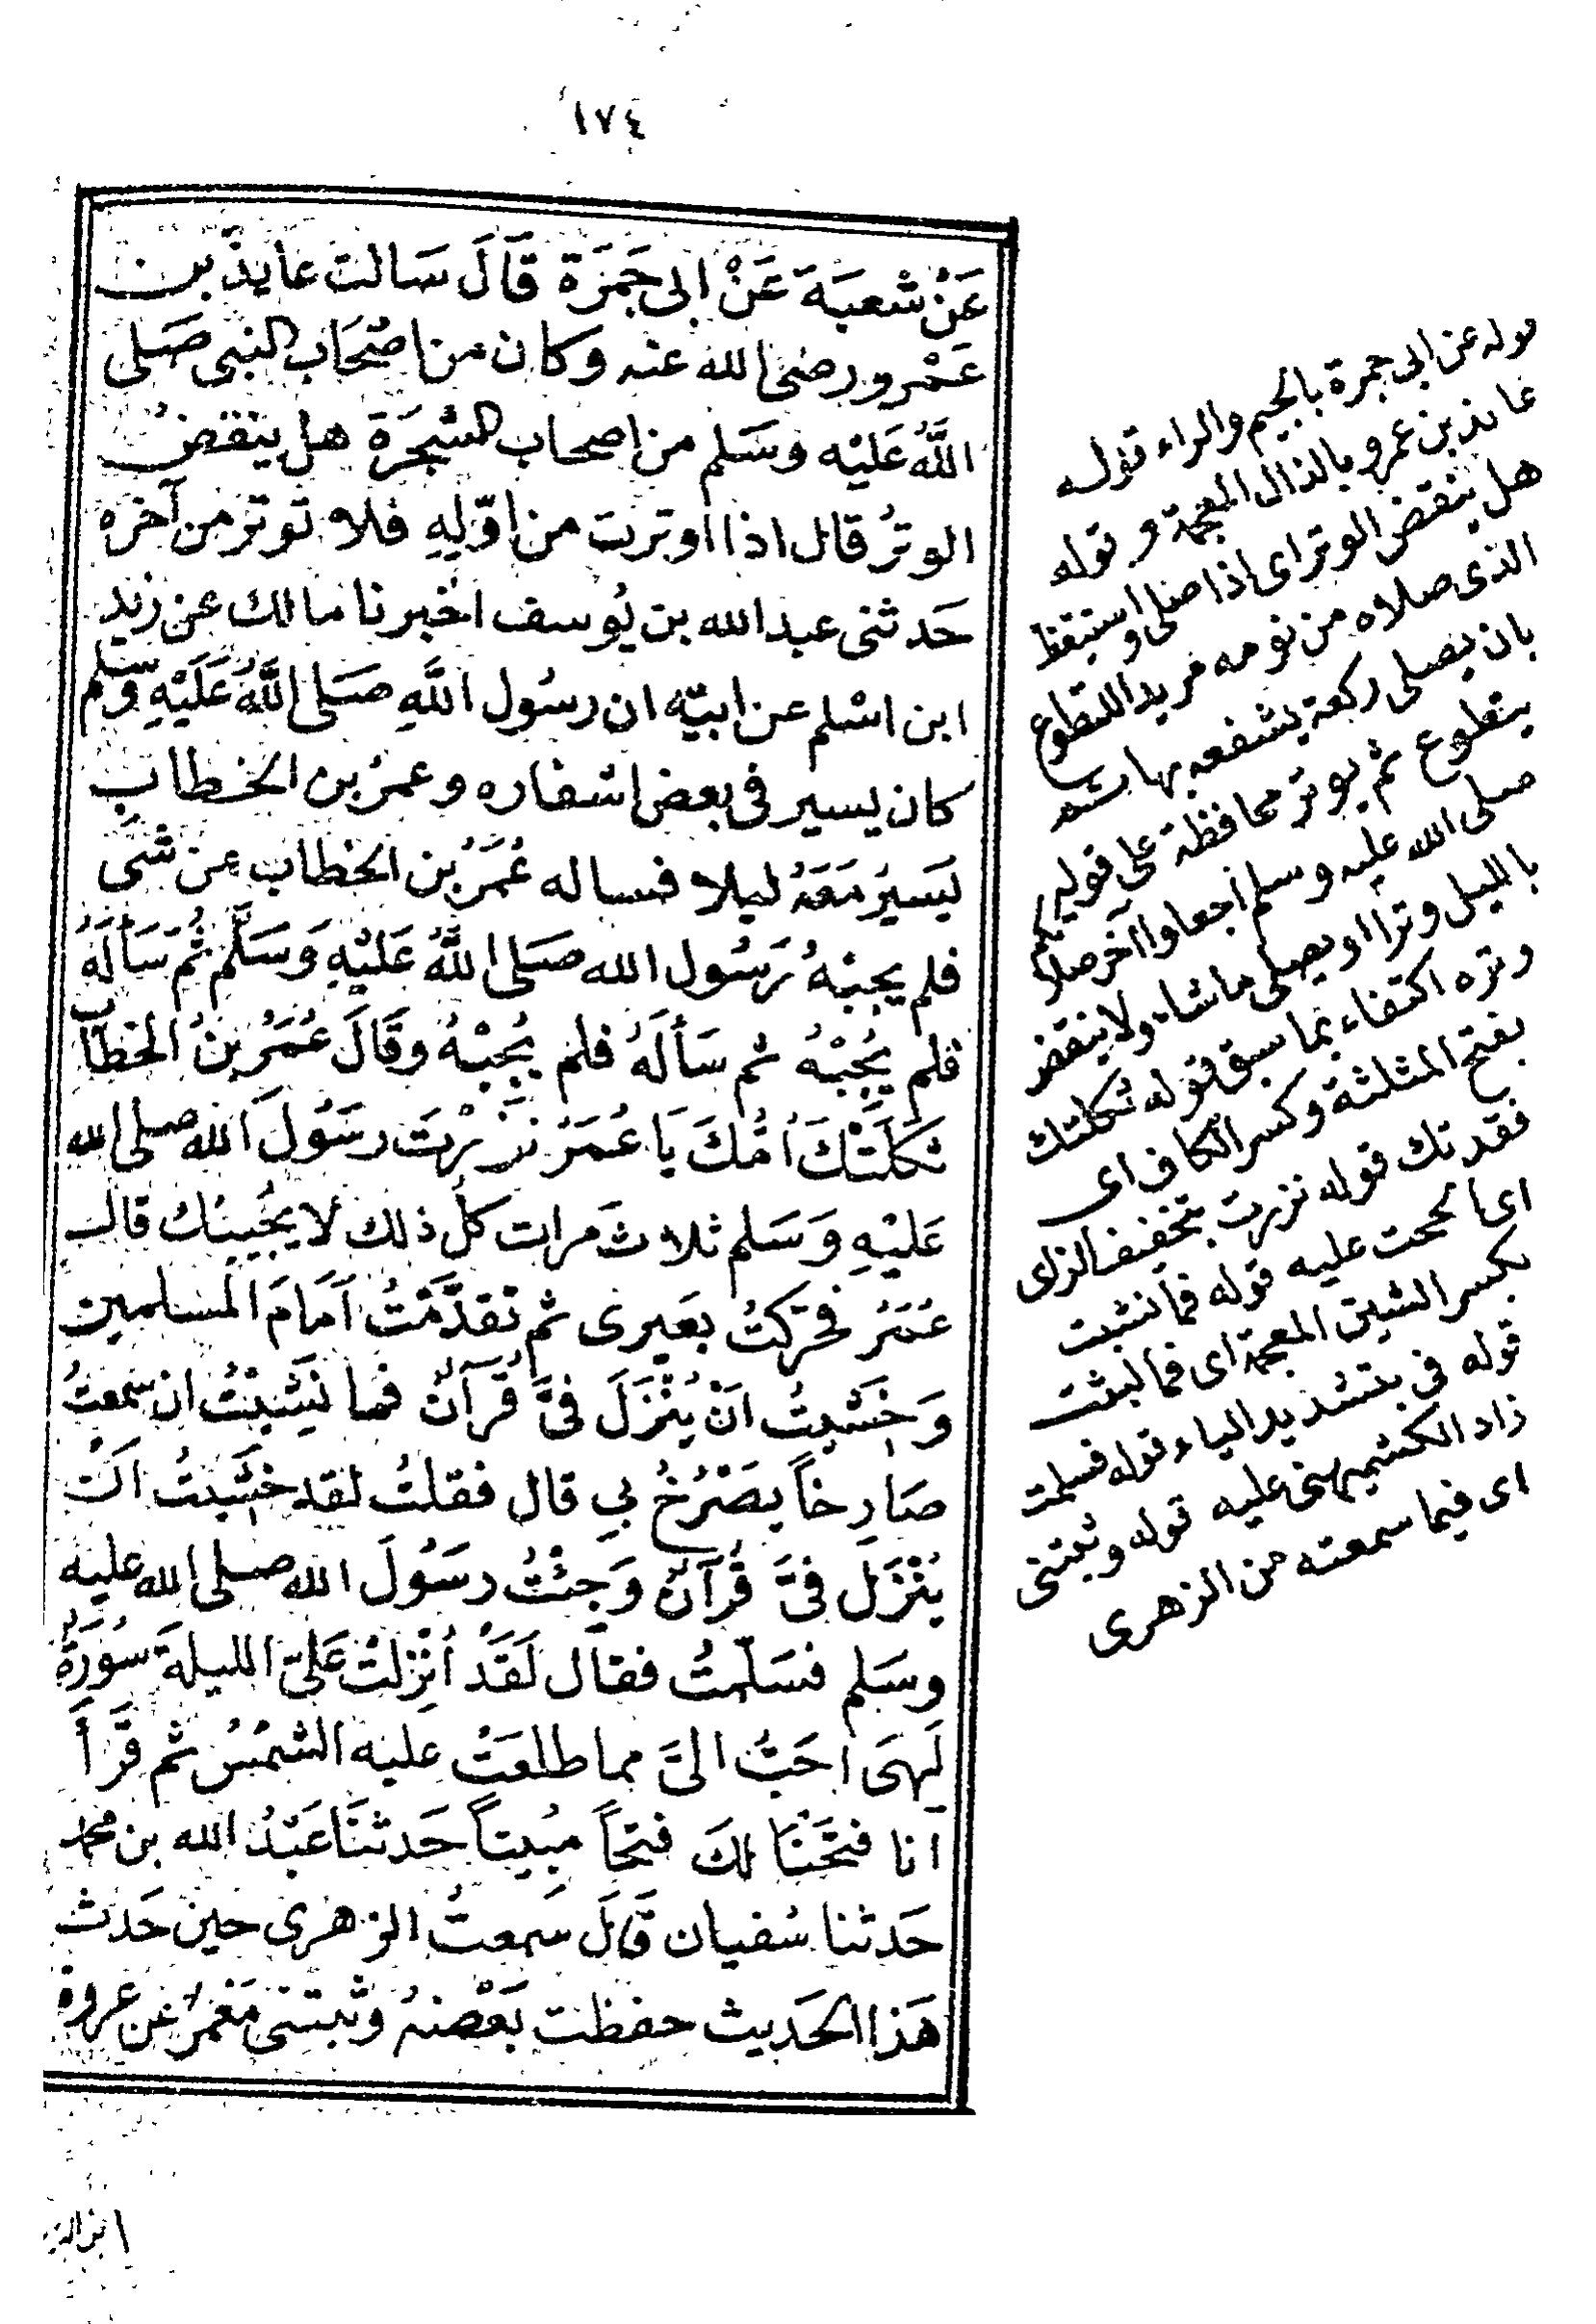 ١٧٤
عَنْ شعبَة عَنْ ابى جَمَرَة قَالَ سَالت عايذ بن
عَمْرو رضى الله عنه وكان من اصْحَاب النبى صَلى
اللَّهُ عَلَيْه وسَلم من اصحاب الشجَرَة هل ينقض
الوترُ قال اذا اوترت من اوّلِهِ فلا توتر من آخره
حَدثنى عبد الله بن يُوسف اخبرنا مالك عن زيد
ابن اسْلم عن ابيّه ان رسُول اللَّهِ صَلى اللَّهُ عَلَيْهِ وَسَلم
كان يسير فى بعض اسْفاره وعمرُ بن الخطاب
يَسيرُ مَعَهُ ليلا فساله عُمَرُ بن الخطاب عن شى
فلم يجبْهُ رَسُول الله صَلى اللَّهُ عَليْهِ وَسَلَّم ثُمَّ سَألَهُ
فلم يُجِبْهُ ثم سَألَهُ فلم يُجِبْهُ وقَالَ عُمَرُ بنُ الخطاب
ثكلَتْكَ اُمُّكَ يَا عُمَرُ نزرْتَ رسُولَ الله صلى الله
عَليْهِ وَسَلم ثلاث مرات كلّ ذلك لا يُجيبُك قال
عُمَرُ فحَرّكتُ بعَيرى ثم تقدَّمتُ اَمَامَ المسلمين
وَخَشيتُ اَنْ يُنْزَلَ فىَّ قُرآنٌ فما نَشِبْتُ ان سمعتُ
صَارِخاً يصْرُخُ بى قال فقلتُ لقد خشيتُ اَن
يُنْزَل فىَّ قُرآنٌ وَجئْتُ رسُولَ الله صلى الله عليه
وسَلم فسَلّمتُ فقال لَقَدْ أُنْزِلَتْ عَلىّ الليلة سُورَةٌ
لَهِىَ اَحَبُّ الىَّ مما طلعَتْ عليه الشمْسُ ثم قَرَأَ
انا فتَحْنَا لكَ فتحاً مبُيناً حَدثنَا عَبْدُ الله بن محمد
حَدثنا سُفيان قَالَ سَمعتُ الزهرى حين حَدث
هَذا الحَديث حفظت بَعْضهُ وثبتنى مَعْمَرٌ عن عروة
قوله عن ابى جمرة بالجيم والراء قوله
عائذ بن عمرو بالذال المعجمة وقوله
هل ينقض الوتر اى اذا صلى واستيقظ
الذى صلاه من نومه مريدا للتطوع
بان يصلى ركعة يشفعه بها ثم
يتطوع ثم يوتر محافظة على قوله
صلى الله عليه وسلم اجعلوا آخر صلاتكم
بالليل وترا او يصلى ما شاء ولا ينقض
وتره اكتفاء بما سبق قوله ثكلتك
بفتح المثلثة وكسر الكاف اى
فقدتك قوله نزرت بتخفيف الزاى
اى الححت عليه قوله فما نشبت
بكسر الشين المعجمة اى فما لبثت
قوله فى بتشديد الياء قوله فسلمت
زاد الكشميهنى عليه قوله وثبتنى
اى فيما سمعته من الزهرى